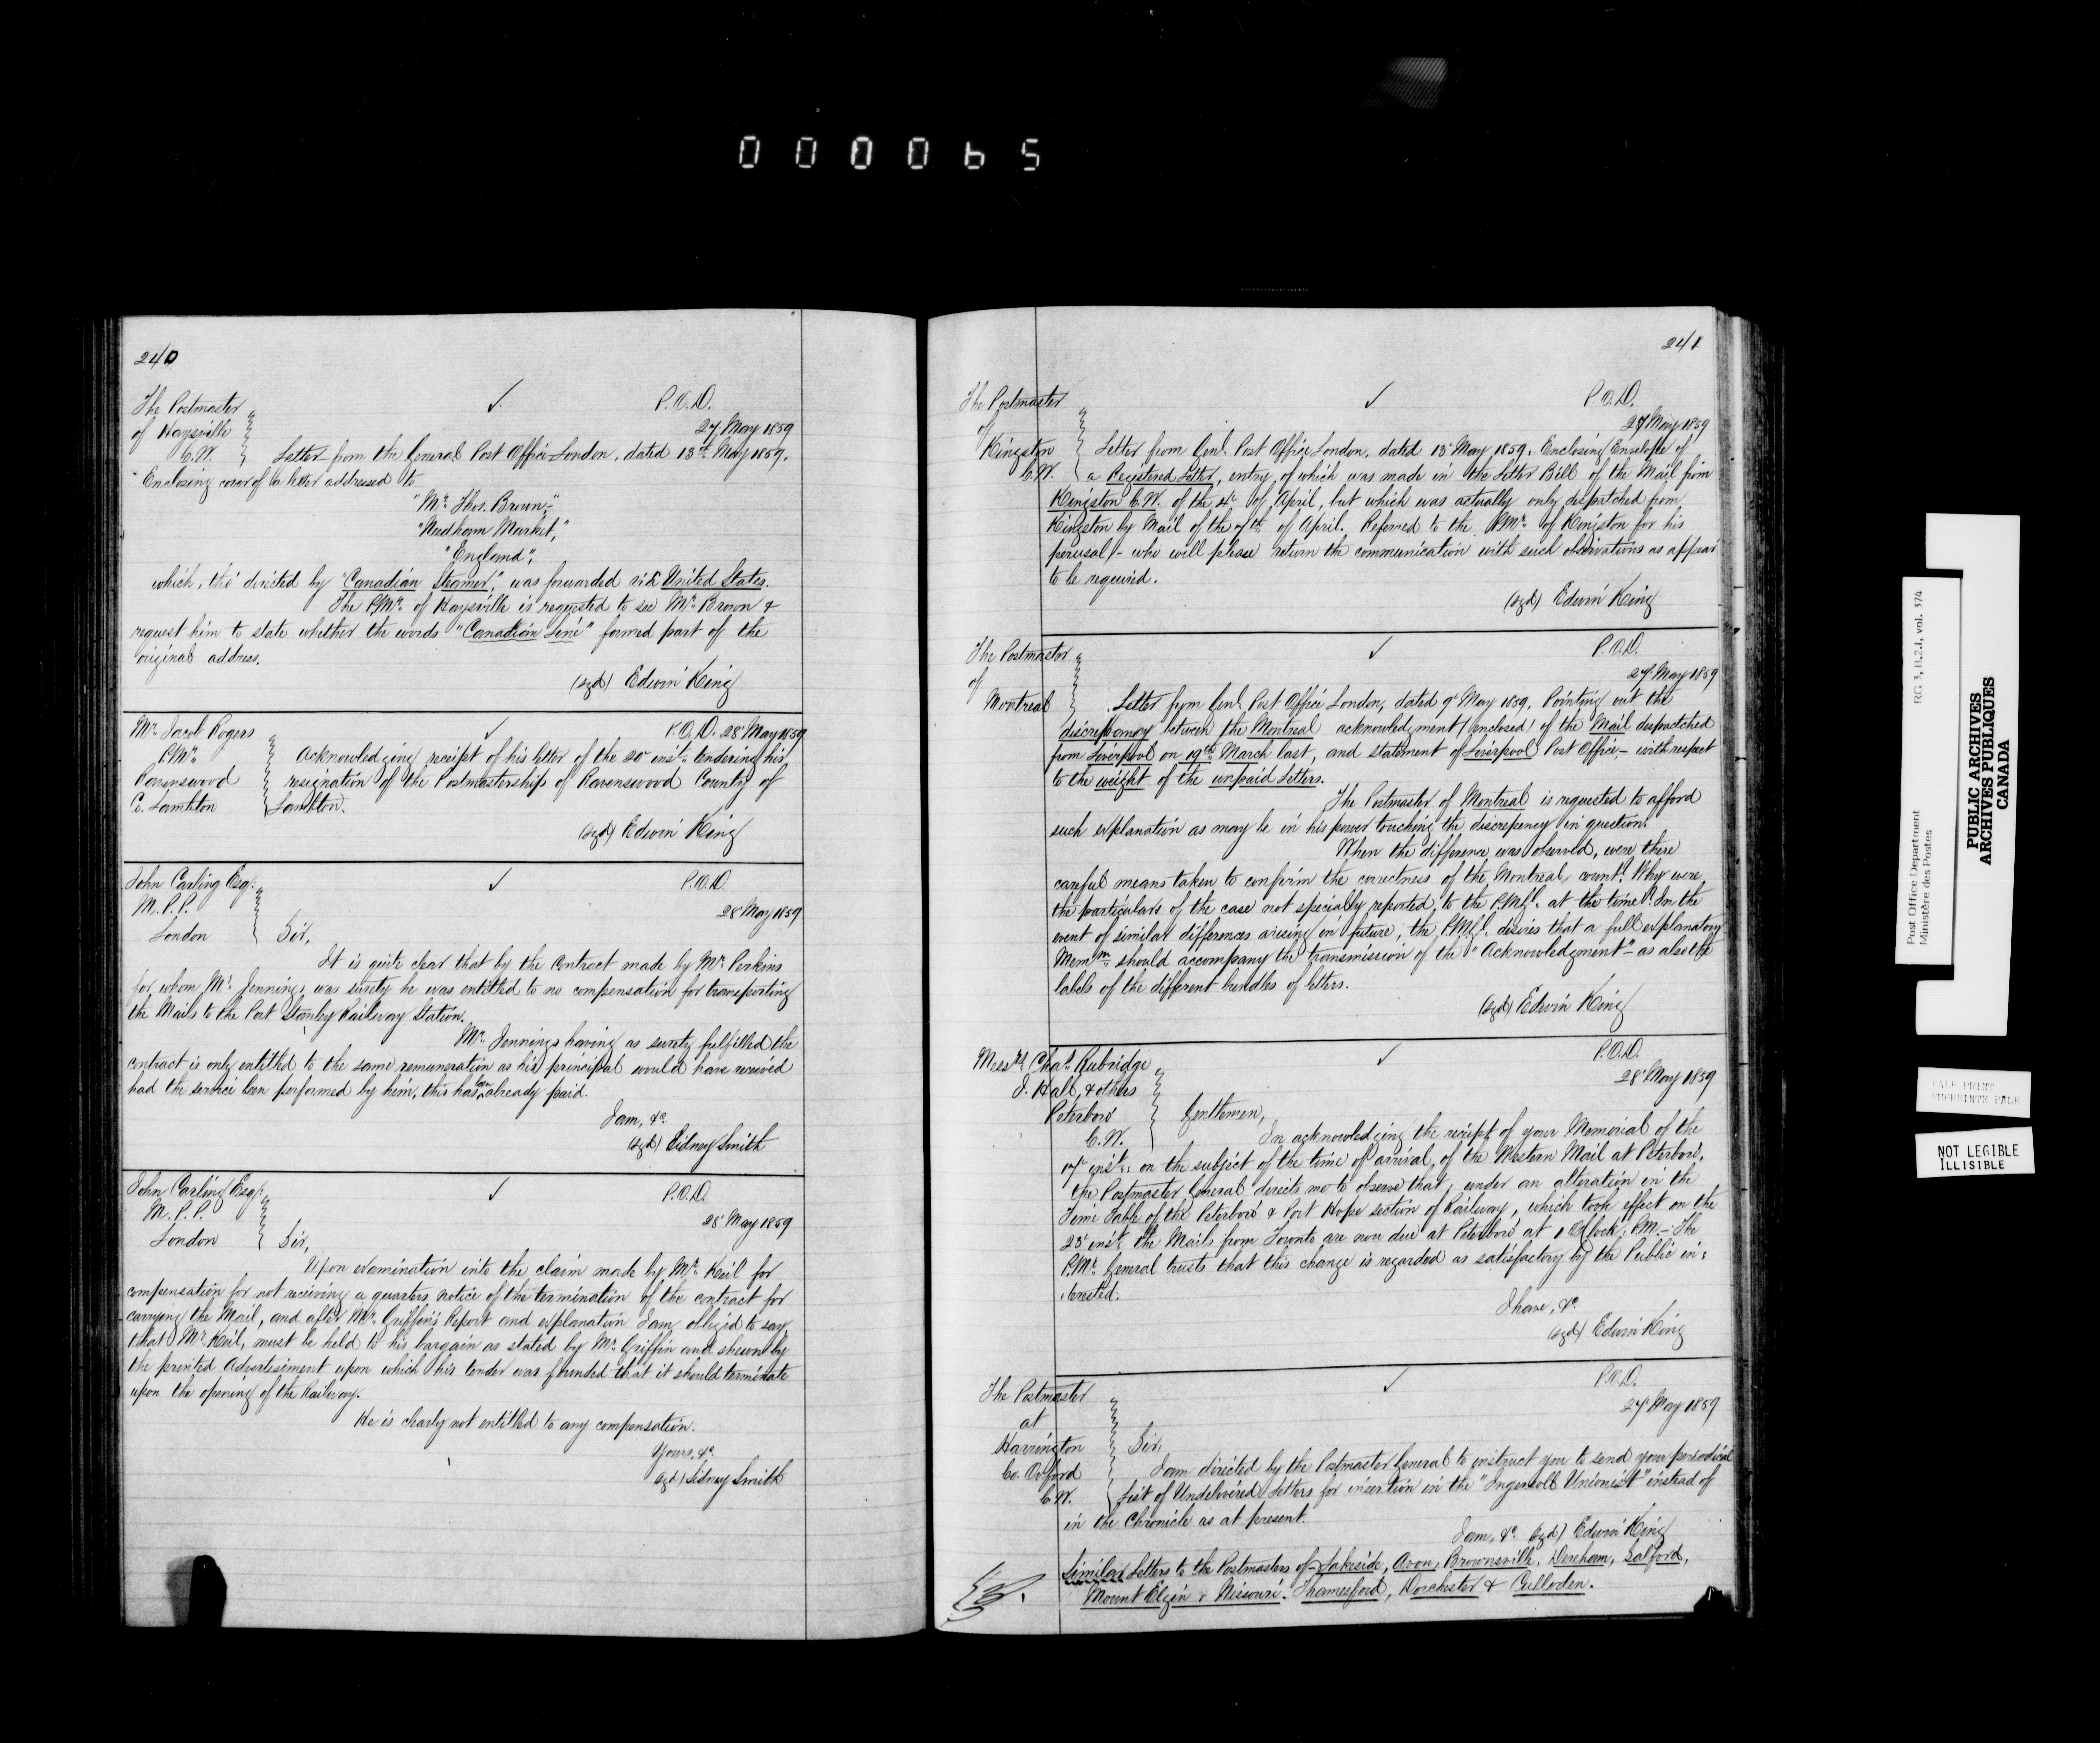 000065
240
The Postmaster
of Haysville
C.W.
✓
P.O.D.
27 May 1859
Letter from the General Post Office London, dated 13th May 1859.
Enclosing cover of a letter addressed to
"Mr. Thos. Brown,"
"Needham Market,"
"England",
which, tho' directed by "Canadian Steamer", was forwarded viâ United States.
The P.Mr. of Haysville is requested to see Mr. Brown &
request him to state whether the words "Canadian Line" formed part of the
original address.
(sgd) Edwin King
Mr. Jacob Rogers
P.Mr.
Ravenswood
Co. Lambton
✓
P.O.D. 28 May 1859
Acknowledging receipt of his letter of the 20 inst. tendering his
resignation of the Postmastership of Ravenswood County of
Lambton.
(sgd) Edwin King
John Carling Esqr.
M.P.P.
London
✓
P.O.D.
28 May 1859
Sir,
It is quite clear that by the Contract made by Mr. Perkins
for whom Mr. Jennings was surety he was entitled to no compensation for transporting
the Mails to the Port Stanley Railway Station.
Mr. Jennings having as surety fulfilled the
contract is only entitled to the same remuneration as his principal would have received
had the service been performed by him, this has been already paid.
I am, &c.
(sgd) Sidney Smith
John Carling Esqr.
M.P.P.
London
✓
P.O.D.
28 May 1859
Sir,
Upon examination into the claim made by Mr. Keil for
compensation for not receiving a quarters notice of the termination of the contract for
carrying the Mail, and after Mr. Griffin's Report and explanation I am obliged to say
that Mr. Keil, must be held to his bargain as stated by Mr. Griffin and shewn by
the printed Advertisement upon which his tender was founded that it should terminate
upon the opening of the Railway.
He is clearly not entitled to any compensation.
Yours, &c.
(sgd) Sidney Smith
241
The Postmaster
of
Kingston
C.W.
✓
P.O.D.
27 May 1859
Letter from Genl. Post Office London, dated 13 May 1859. Enclosing Envelope of
a Registered Letter, entry of which was made in the Letter Bill of the Mail from
Kingston C.W. of the of April, but which was actually only despatched from
Kingston by Mail of the 7th of April. Referred to the P.Mr. of Kingston for his
perusal - who will please return the communication with such observations as appear
to be required.
(sgd) Edwin King
The Postmaster
of
Montreal
✓
P.O.D.
27 May 1859
Letter from Genl. Post Office London, dated 9 May 1859. Pointing out the
discrepancy between the Montreal acknowledgment (enclosed) of the Mail despatched
from Liverpool on 19th March last, and statement of Liverpool Post Office, - with respect
to the weight of the unpaid Letters.
The Postmaster of Montreal is requested to afford
such explanation as may be in his power touching the discrepency in question.
When the difference was observed, were there
careful means taken to confirm the correctness of the Montreal count? Why were
the particulars of the case not specially reported to the P.M.Gl. at the time? In the
event of similar differences arising in future, the P.M.Gl. desires that a full explanatory
Memm. should accompany the transmission of the "Acknowledgment" - as also the
labels of the different bundles of letters.
(sgd) Edwin King
Messrs. Chas. Rubridge
J. Hall, & others
Peterboro'
C.W.
✓
P.O.D.
28 May 1859
Gentlemen,
In acknowledging the receipt of your Memorial of the
17 inst: on the subject of the time of arrival, of the Western Mail at Peterboro',
the Postmaster General directs me to observe that, under an alteration in the
Time Table of the Peterboro' & Port Hope section of Railway, which took effect on the
25 inst. the Mails from Toronto are now due at Peterboro' at 1 O'Clock, P.M. - The
P.Mr. General trusts that this change is regarded as satisfactory by the Public in:
:terested.
I have, &c.
(sgd) Edwin King
The Postmaster
at
Harrington
Co. Oxford
C.W.
✓
P.O.D.
27 May 1859
Sir,
I am directed by the Postmaster General to instruct you to send your periodical
List of Undelivered Letters for insertion in the "Ingersoll Unionist" instead of
in the Chronicle as at present.
I am, &c. (sgd) Edwin King
Similar Letters to the Postmasters of - Lakeside, Avon, Brownsville, Dereham, Salford,
Mount Elgin & Nissouri. Thamesford, Dorchester & Culloden.
Post Office Department
Ministère des Postes
RG 3, B.2.1, vol. 374
PUBLIC ARCHIVES
ARCHIVES PUBLIQUES
CANADA
PALE PRINT
IMPRIMTE PALE
NOT LEGIBLE
ILLISIBLE